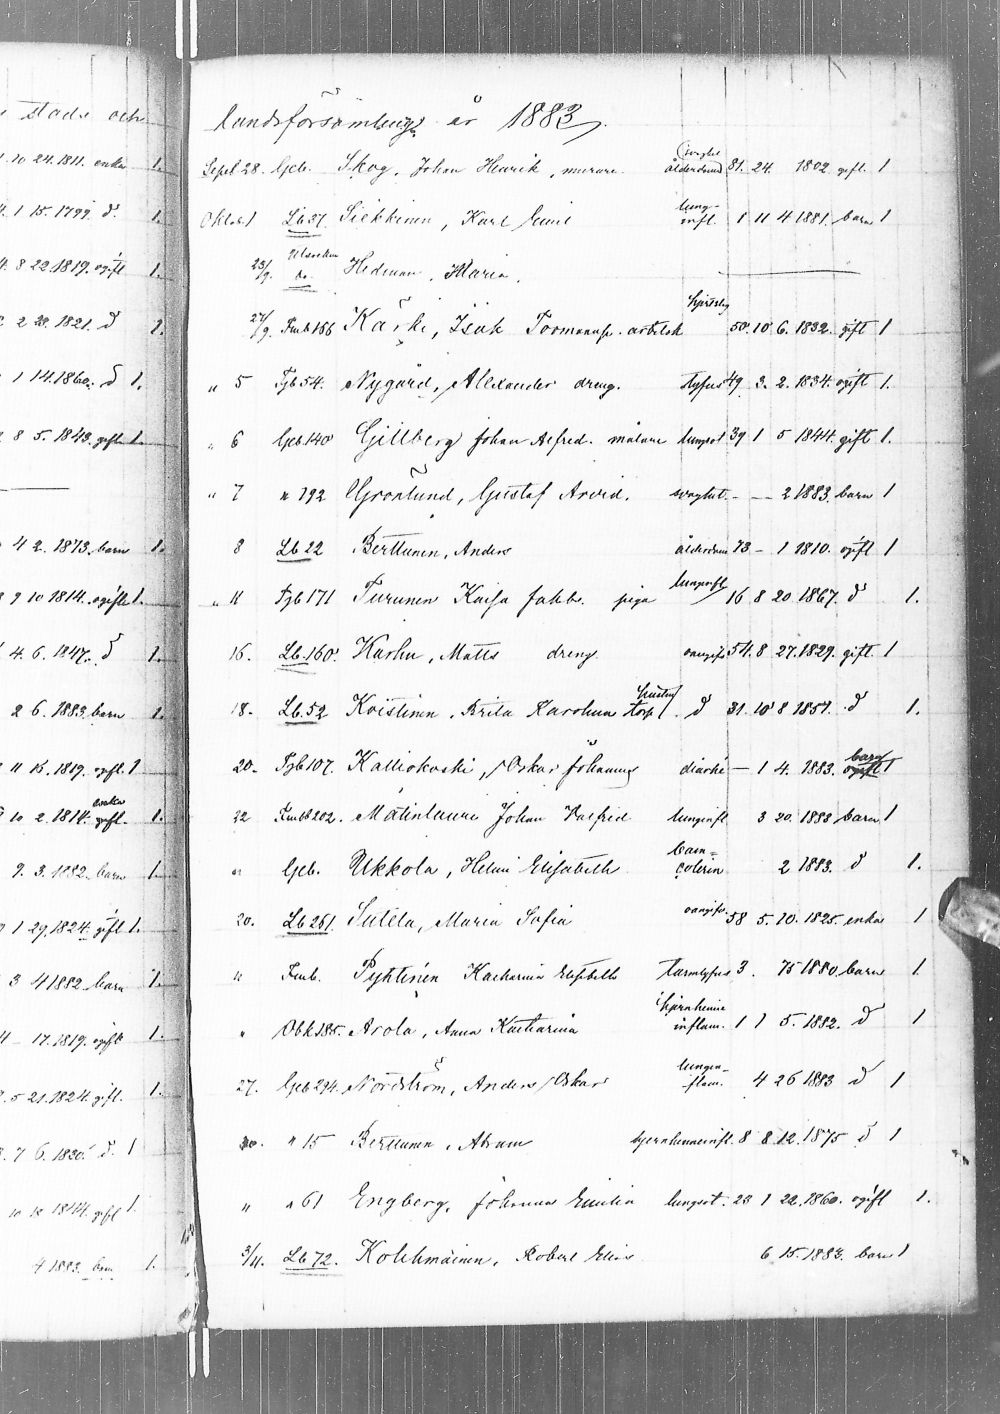 stads och
10 24. 1811. enka 1.
1 15. 1799. d. 1.
8 22. 1819. ogift 1.
2 28. 1821. d 1.
1 14. 1860. d 1.
8 5. 1843. gift 1.
4 2. 1873. barn 1.
9 10 1814. ogift 1.
4. 6. 1847. d 1.
2 6. 1883. barn 1.
11 15. 1819. ogift. 1
10 2. 1814. enka gift. 1.
9. 3. 1882. barn 1.
1 29. 1824. gift 1.
3 4 1882 barn 1.
17. 1819. ogift 1.
5 21. 1824. gift. 1.
7 6. 1820. d. 1
1814. gift 1.
4 1883. barn 1.
landsförsamlings år 1883.
Sept 28. Gcb. Skog, Johan Henrik, murare. svaghet ålderdoms 81. 24. 1802. gift. 1
Oktob. 1 Lb 37. Siekkinen, Karl Emil lung-infl. 1 11 4 1881. barn 1
23/9. Utsocken do. Hedman, Maria.
27/9. Kmb 156 Kärki, Isak Tormannsp. arbetsk hjertslag 50. 10 6. 1832. gift 1
" 5 Tgb 54. Nygård, Alexander dreng. tyfus 49 3. 2. 1834. ogift 1.
" 6 Gcb. 140 Gillberg Johan Alfred. målare lungsot 39 1 5 1844. gift 1.
" 7 " 192 Grönlund, Gustaf Arvid. svaghet. - - 2 1883. barn 1
8 Lb 22 Berttunen, Anders ålderdom 73 - 1 1810. ogift 1
" 11 Tgb 171 Turunen Kaisa Jakb. piga lunginfl 16 8 20. 1867. d 1.
16. Lb. 160. Karhu, Matts dreng. oangifv 54. 8 27. 1829. gift. 1
18. Lb. 52 Koistinen, Brita Karolina torp. hustru d 31. 10 8 1851. d 1.
20. Tgb 107. Kalliokoski, Oskar Johannes diarhé - 1 4. 1883. barn 1
22 Kmb 202. Matinlauri Johan Valfrid lunginfl 3 20. 1883 barn 1
" Gcb. Ukkola, Helmi Elisabeth barn-colerin 2 1883. d 1.
20. Lb 261. Sutela, Maria Sofia oangifv. 58 5. 10. 1825. enka 1
" Kmb. Pyhtinen Katharina Elisabeth tarmtyfus 3. 7 5 1880. barn 1.
" Obk 185. Arola, Anna Katharina hjernhinne inflam. 1 1 5. 1882. d 1
27. Gcb 294. Nordström, Anders Oskar lungin-flam. 4 26 1883 d 1
30. " 15 Berttunen, Abram hjernhinneinfl. 8 8. 12. 1875 d 1
" " 61 Engberg, Johanna Emilia lungsot. 23 1 22. 1860. ogift 1.
3/11. Lb 72. Kohlmäinen, Robert Elis 6 15. 1883. barn 1